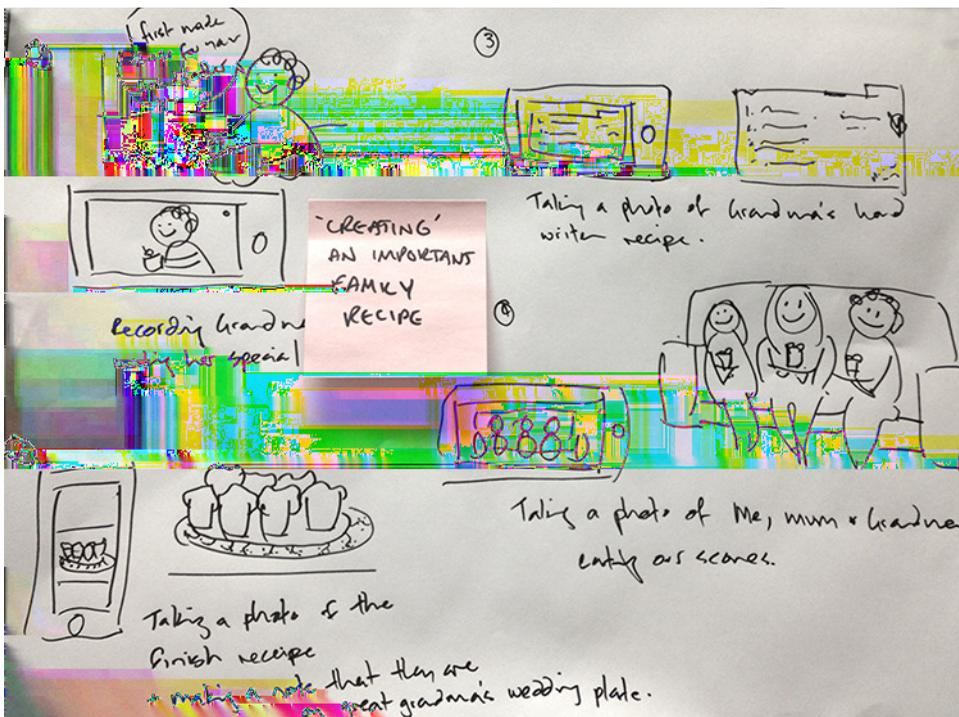 first made
for
③
1.
Taking a photo of Grandma's hand
writen recipe.
'CREATING'
AN IMPORTANT
FAMILY
RECIPE
Recording Grandma
her special
Taking a photo of Me, mum & Grandma
eating our scones.
Taking a photo of the
finish receipe
+ making a note that they are
on great grandma's wedding plate.